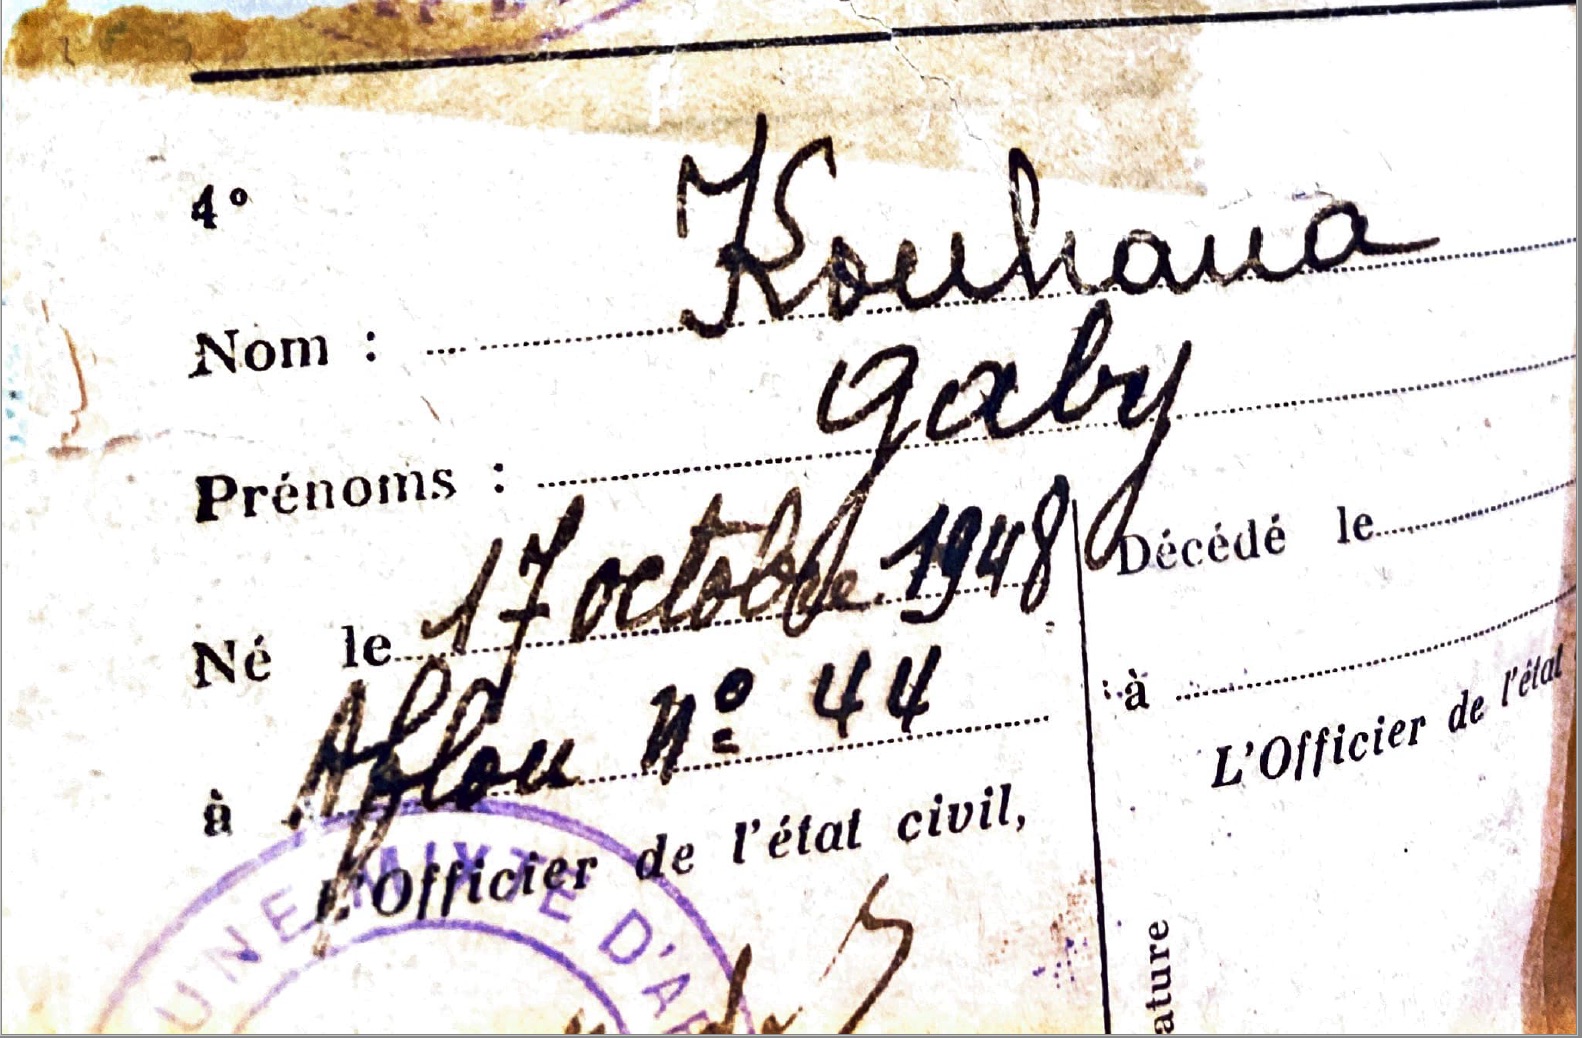 4º
Nom : Kouhana
Prénoms : gaby
Né le 17 octobre 1948
à Aflou Nº 44
L'Officier de l'état civil,
Décédé le
à
L'Officier de l'état
ature
UNE MIXTE D'A